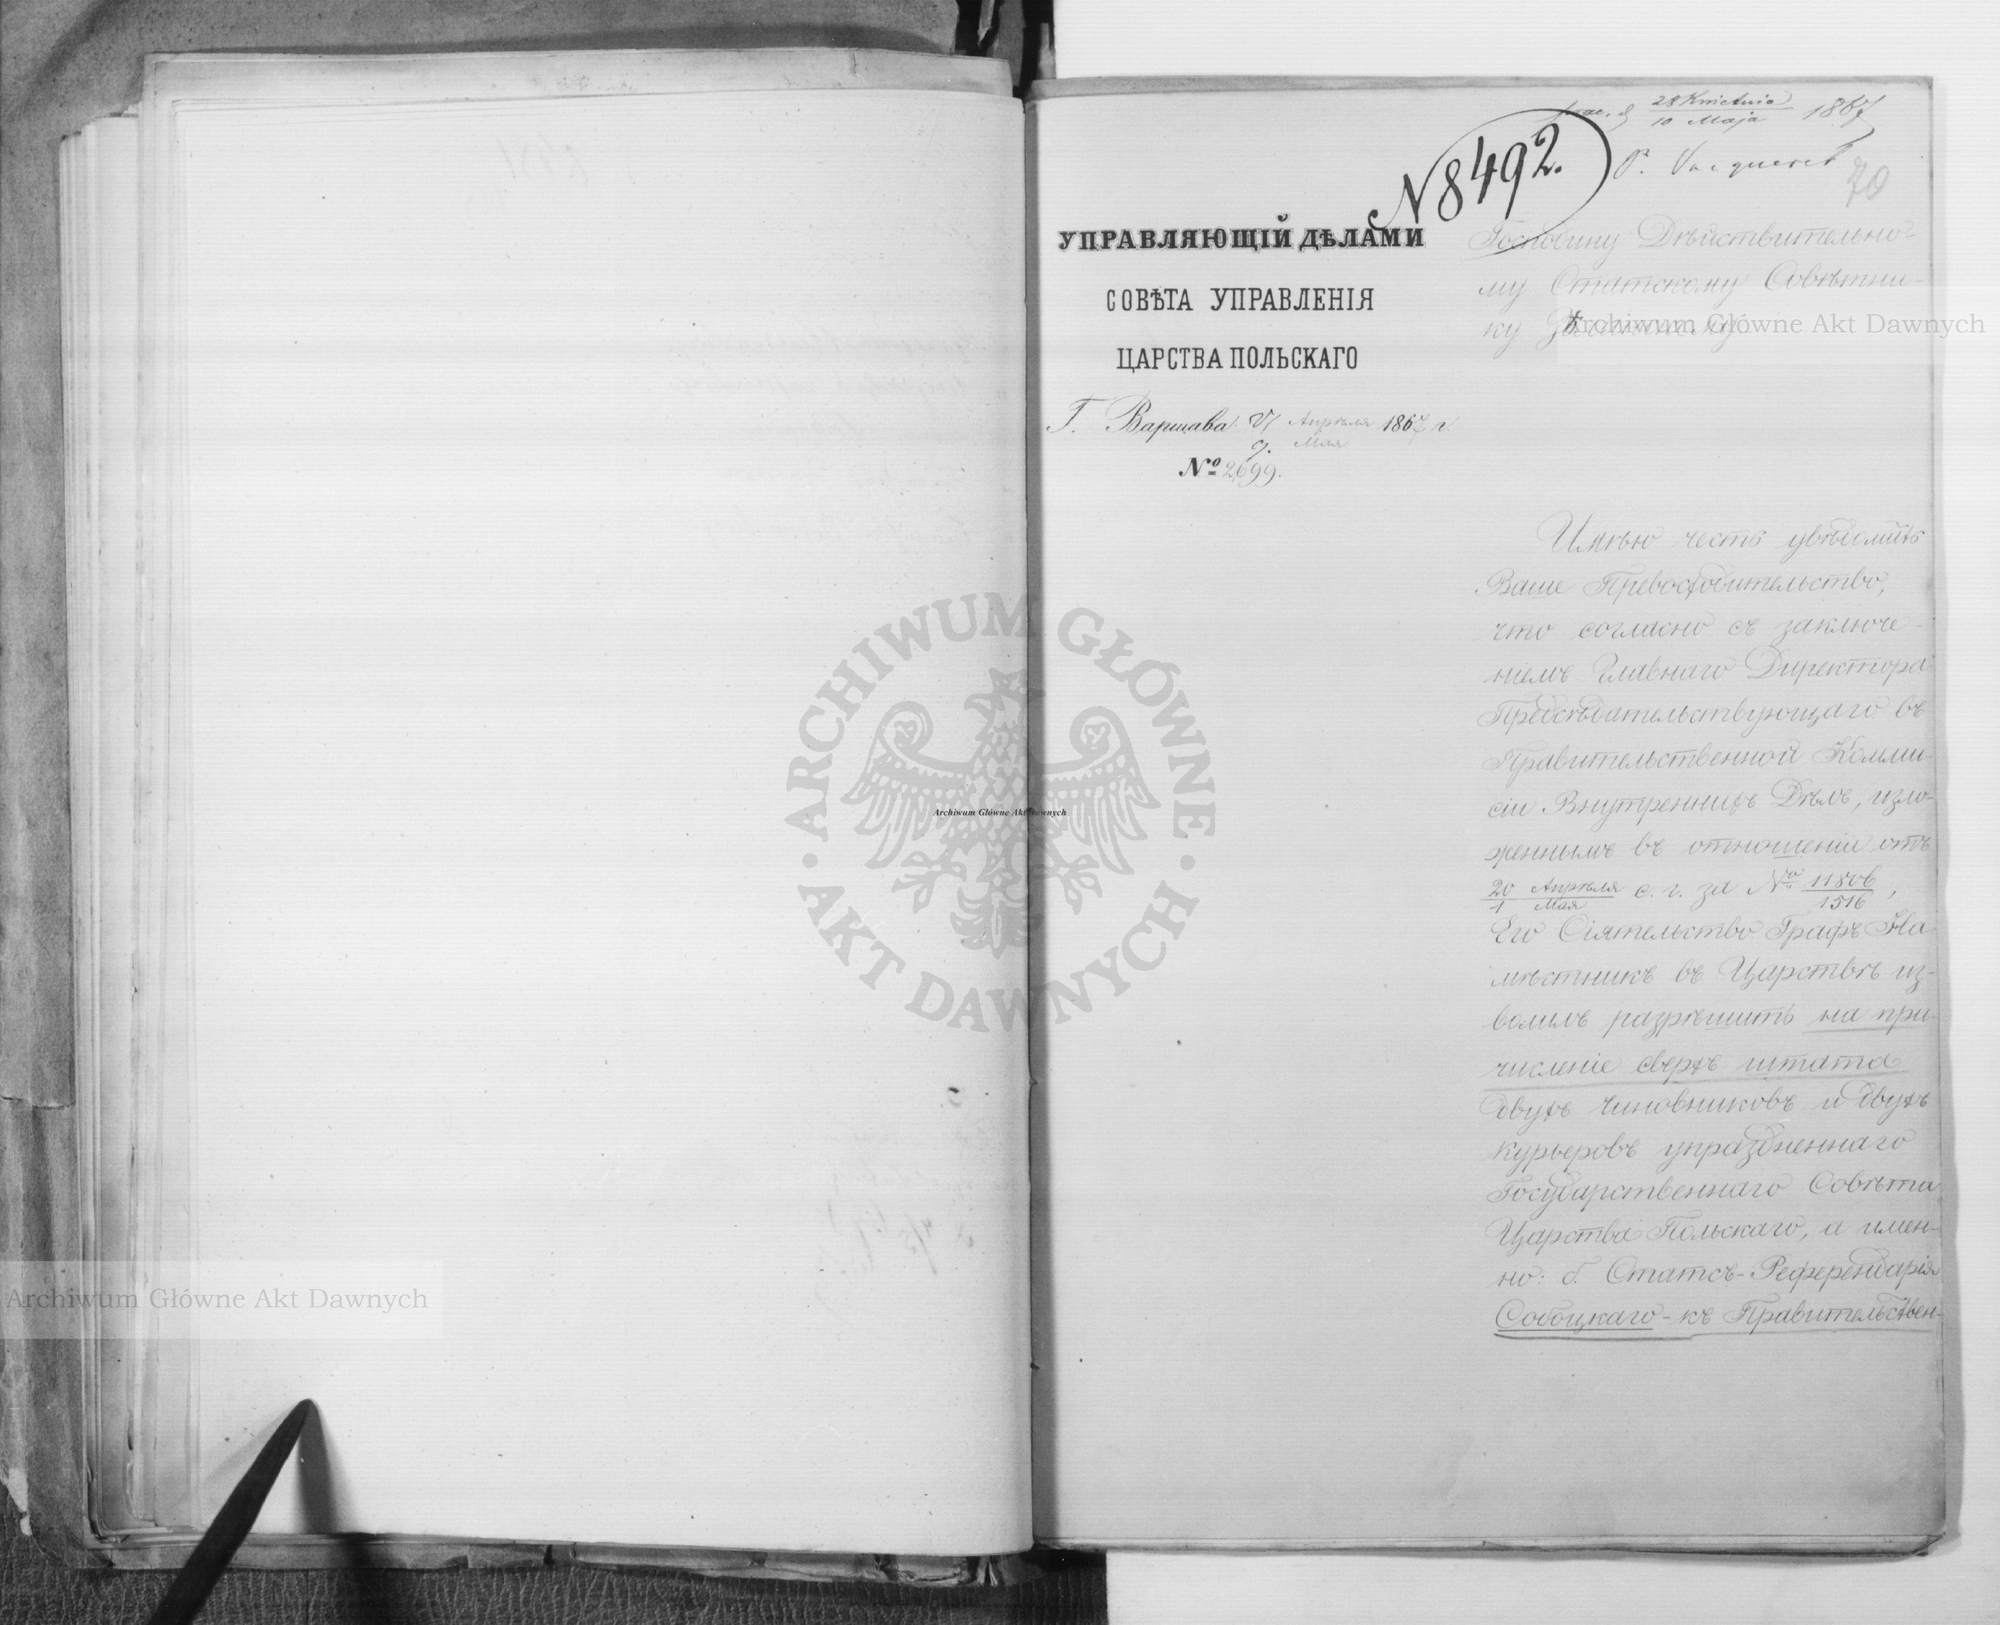 28 Kwietnia
10 Maja 1867
P. Vacqueret
70
N 8492.
УПРАВЛЯЮЩІЙ ДѢЛАМИ
СОВѢТА УПРАВЛЕНІЯ
ЦАРСТВА ПОЛЬСКАГО
Г. Варшава: Апрѣля 1867 г.
9. Мая
№ 2699.
Господину Дѣйствительно-
му Статскому Совѣтни-
ку
Имѣю честь увѣдомить
Ваше Превосходительство,
что согласно съ заключе-
ніемъ Главнаго Директора
Предсѣдательствующаго въ
Правительственной Комми-
сіи Внутреннихъ Дѣлъ, изло-
женнымъ въ отношеніи отъ
20 Апрѣля
1 Мая с. г. за № 11806
1516,
Его Сіятельство Графъ На-
мѣстникъ въ Царствѣ из-
волилъ разрѣшить на при-
численіе сверхъ штата
двухъ чиновниковъ и двухъ
курьеровъ упраздненнаго
Государственнаго Совѣта
Царства Польскаго, а имен-
но: б. Статсъ-Референдарія
Собоцкаго - къ Правительствен-
Archiwum Główne Akt Dawnych
Archiwum Główne Akt Dawnych
Archiwum Główne Akt Dawnych
ARCHIWUM GŁÓWNE · AKT DAWNYCH ·